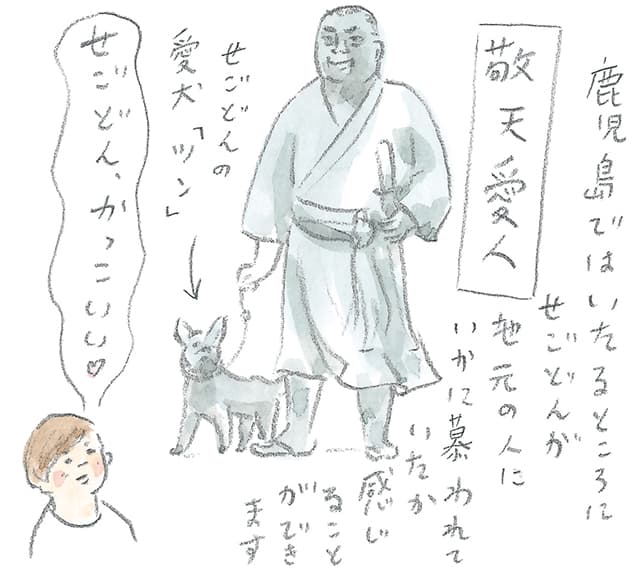 鹿児島ではいたるところに
せごどんが
地元の人に
いかに慕われて
いたか
感じ
ること
ができ
ます
敬天愛人
せごどんの
愛犬「ツン」
せごどん、かっこいい♡